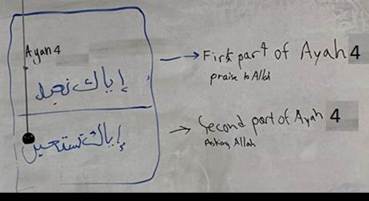 Ayah 4
→ First part of Ayah 4
praise to Allah
إياك نعبد
→ Second part of Ayah 4
Asking Allah
إياك نستعين